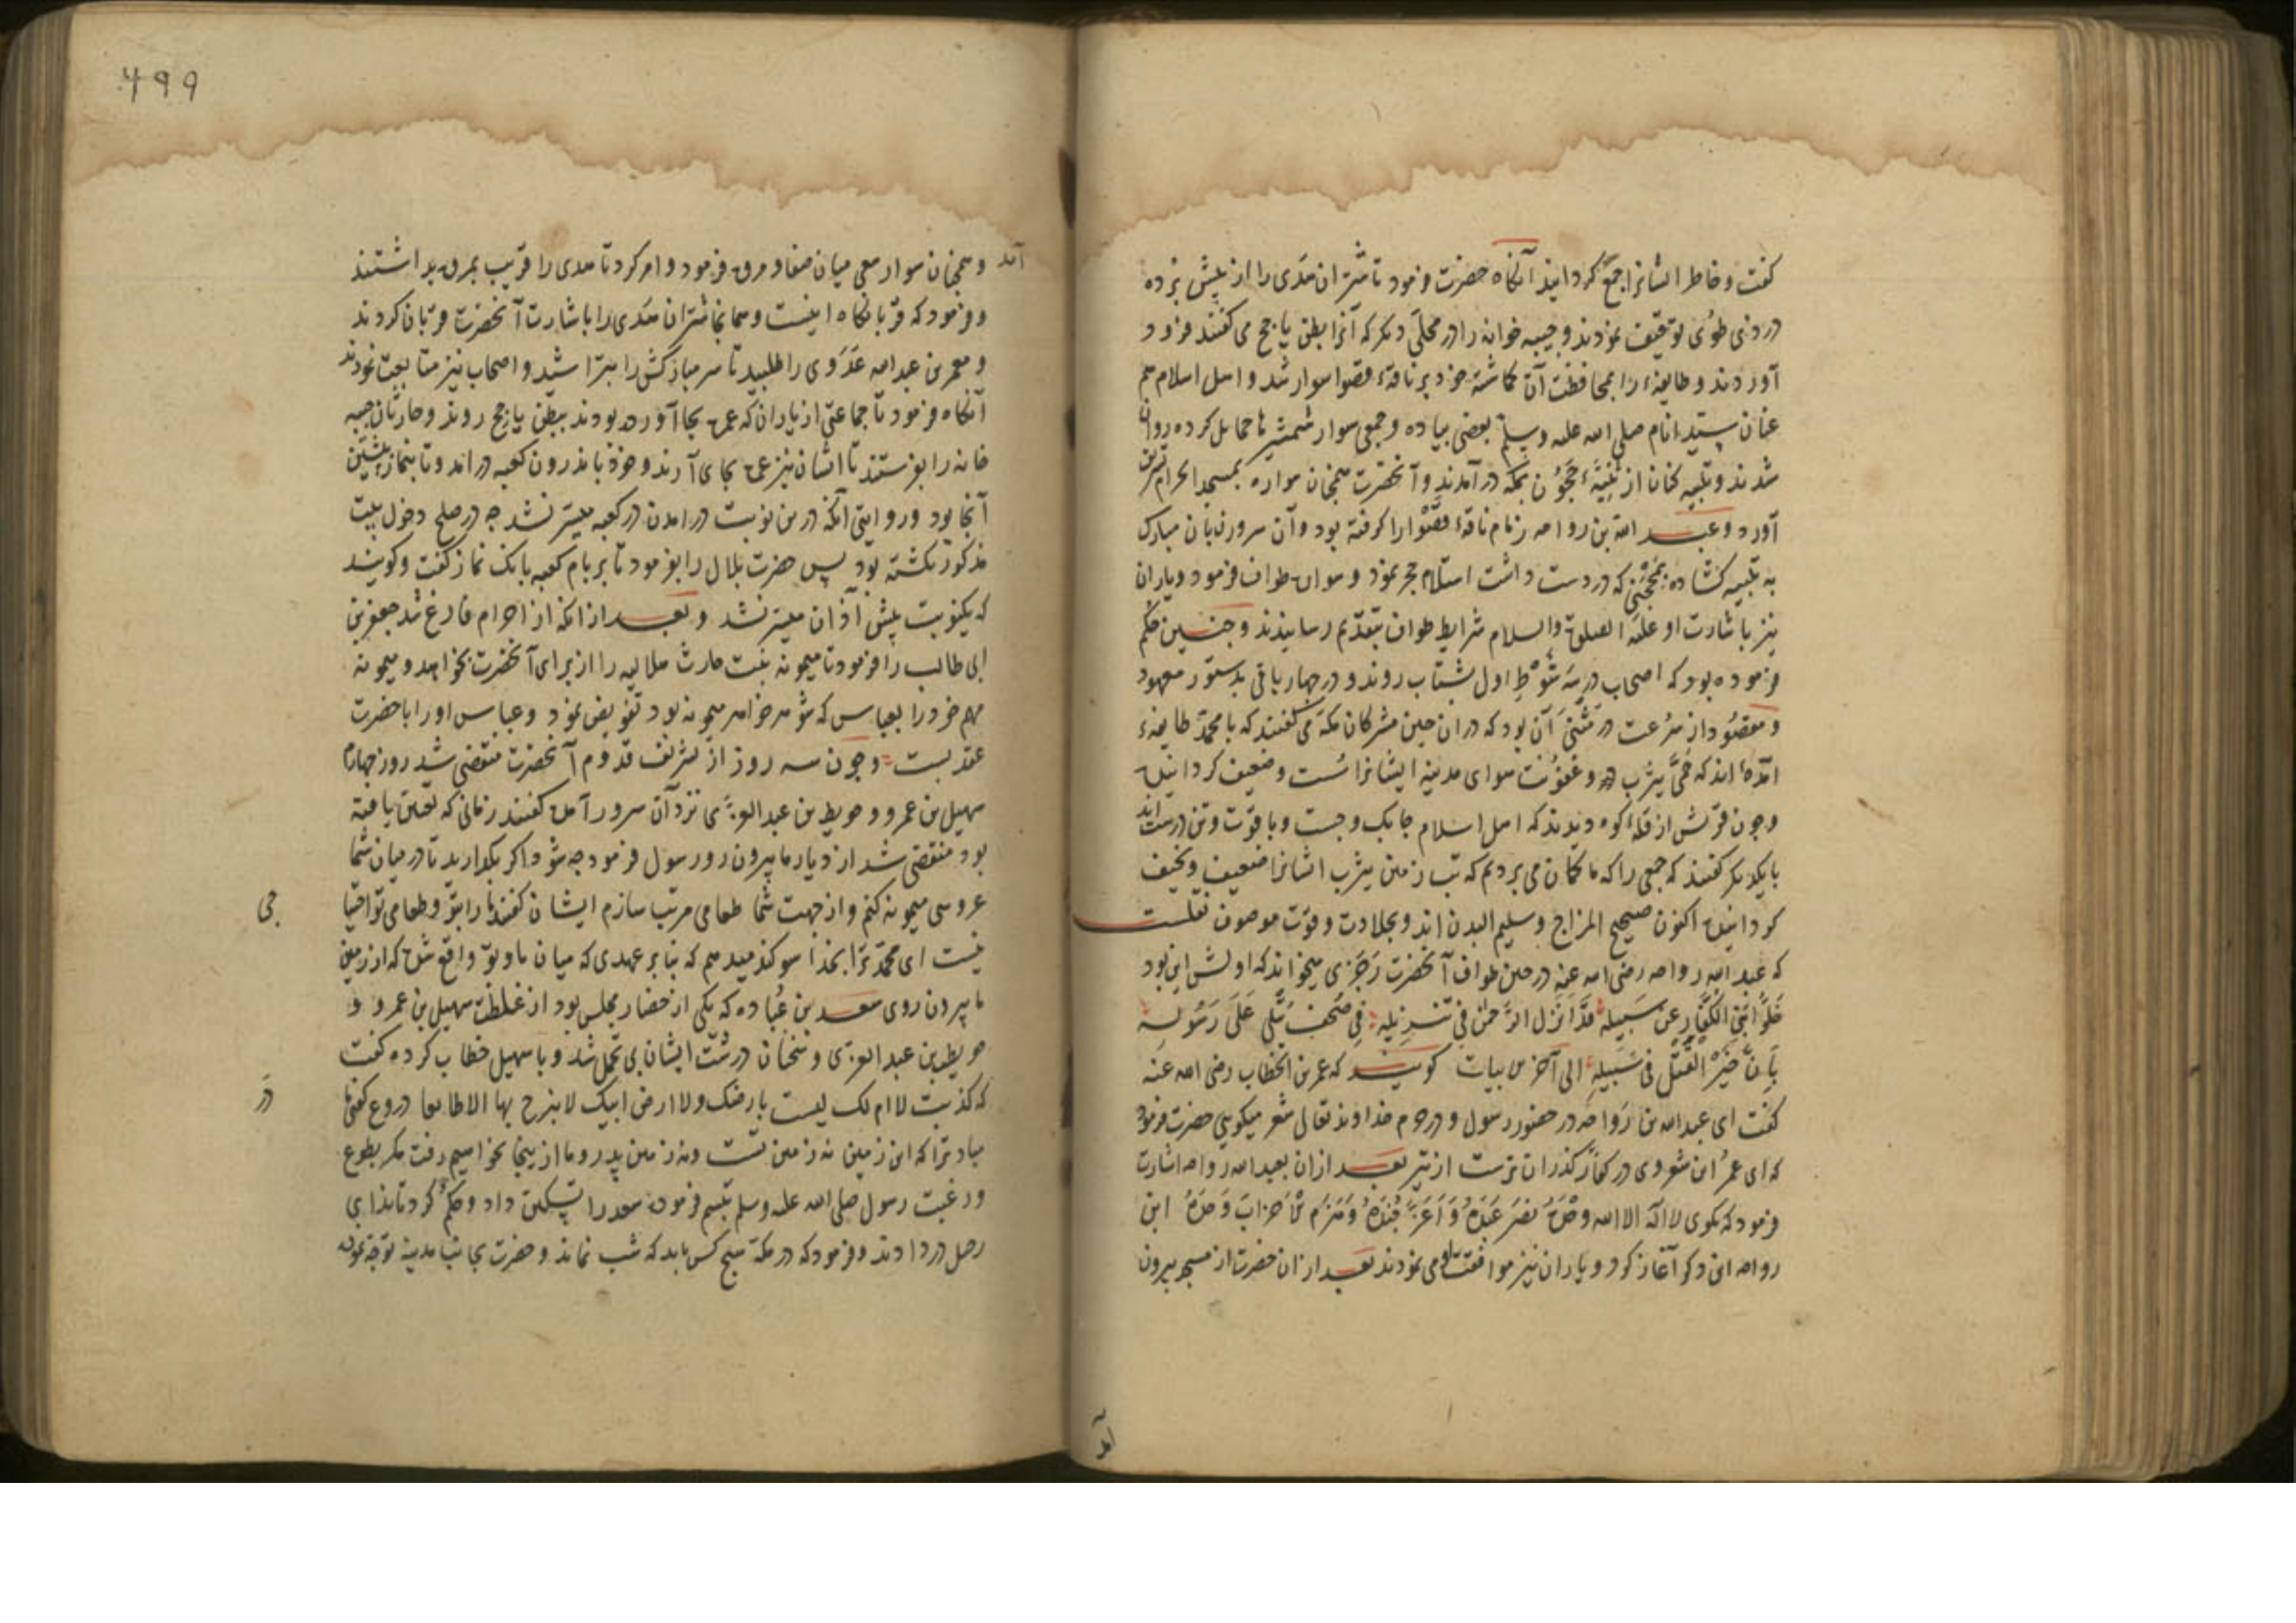 کفت و خاطر ایشانرا جمع کردانید آنکاه حضرت فرمود تا شتران هدی را از پیش برده
در ذی طوی توقیف نمودند و جیبه خوانه را در محلی دیکر که آنرا بطن یاجج می کفتند فرود
آوردند و طایفهٔ را بمحافظت آن کماشته خود بر ناقهٔ قصوا سوار شد و اهل اسلام هم
عنان سید انام صلی الله علیه وسلم بعضی پیاده و جمعی سوار شمشیرها حمایل کرده روان
شدند و تلبیه کنان از ثنیهٔ حجون بمکه در آمدند و آنحضرت همچنان سواره بمسجد الحرام تشریف
آورد و عبد الله بن رواحه زمام ناقهٔ قصوا را کرفته بود و آن سرور زبان مبارک
به تلبیه کشاده بمحجنی که در دست داشت استلام حجر نمود و سواره طواف فرمود و یاران
نیز باشارت او علیه الصلوة والسلام شرایط طواف بتقدیم رسانیدند و جنین حکم
فرموده بود که اصحاب در سه شوط اول بشتاب روند و در چهار باقی بدستور معهود
و مقصود از سرعت در مشی آن بود که در ان حین مشرکان مکه می کفتند که با محمد طایفهٔ
آمده اند که حمی یثرب و عفونت هوای مدینه ایشانرا سست و ضعیف کردانیده
و چون قریش از قلهٔ کوه دیدند که اهل اسلام جابک و جست و با قوت و تن درست اند
با یکدیکر کفتند که جمعی را که ما کمان می بردیم که تب زمین یثرب ایشانرا ضعیف و نحیف
کردانیده اکنون صحیح المزاج و سلیم البدن اند و بجلادت و قوت موصوف نقلست
که عبد الله رواحه رضی الله عنه در حین طواف آنحضرت رجزی میخواند که اولش این بود
خلوا بنی الکفار عن سبیله قد انزل الرحمن فی تنزیله فی صحف تتلی علی رسوله
بان خیر القتل فی سبیله الی آخر الابیات کویند که عمر بن الخطاب رضی الله عنه
کفت ای عبد الله بن رواحه در حضور رسول و در حرم خداوند تعالی شعر میکویی حضرت فرمود
که ای عمر این شعر وی در کفار کذران ترست از تیر بعد ازان بعبد الله رواحه اشارت
فرمود که بکوی لا اله الا الله وحده نصر عبده و اعز جنده و هزم الاحزاب وحده ابن
رواحه این ذکر آغاز کرد و یاران نیز موافقت او می نمودند بعد ازان حضرت از مسجد بیرون
آمد
۴۹۹
آمد و همچنان سوار سعی میان صفا و مروه فرمود و امر کرد تا هدی را قریب بمروه بداشتند
و فرمود که قربانکاه اینست و همانجا شتران هدی را باشارت آنحضرت قربان کردند
و معمر بن عبد الله عدوی را طلبید تا سر مبارکش را مبرا شید و اصحاب نیز متابعت نمودند
آنکاه فرمود تا جماعتی از یاران که عمره بجا آورده بودند ببطن یاجج روند و حارثان جیبه
خانه را بفرستند تا ایشان نیز عمره بجای آرند و خود باندرون کعبه در آمد و تا نماز پیشین
آنجا بود و روایتی آنکه درین نوبت در امدن در کعبه میسر نشد چه در صلح دخول بیت
مذکور نکشته بود پس حضرت بلال را بفرمود تا بر بام کعبه بانک نماز کفت و کویند
که یکنوبت پیش اذان میسر نشد و بعد ازانکه از احرام فارغ شد جعفر بن
ابی طالب را فرمود تا میمونه بنت حارث هلالیه را از برای آنحضرت بخواهد و میمونه
مهم خود را بعباس که شوهر خواهر میمونه بود تفویض نمود و عباس او را با حضرت
عقد بست و چون سه روز از تشریف قدوم آنحضرت منقضی شد روز چهارم
سهیل بن عمرو و حویطب بن عبد العزی نزد آن سرور آمده کفتند زمانی که تعیین یافته
بود منقضی شد از دیار ما بیرون رو رسول فرمود چه شود اکر بکذارید تا در میان شما
عروسی میمونه کنم و از جهت شما طعامی مرتب سازم ایشان کفتند ما را بتو و طعام تو احتیاجی
نیست ای محمد ترا بخدا سوکند میدهیم که بنابر عهدی که میان ما و تو واقع شده که از زمین
ما بیرون روی سعد بن عباده که یکی از حضار مجلس بود از غلظت سهیل بن عمرو و
حویطب بن عبد العزی و سخنان درشت ایشان بی تحمل شد و با سهیل خطاب کرده کفت
که کذبت لا ام لک لیست بارضک ولا ارض ابیک لا یبرح بها الا طایعا دروغ کفتی مادر
مباد ترا که این زمین نه زمین تست و نه زمین پدر و ما ازینجا نخواهیم رفت مکر بطوع
و رغبت رسول صلی الله علیه وسلم تبسم فرموده سعد را تسکین داد و حکم کرد تا ندای
رحیل در دادند و فرمود که در مکه هیچ کس باید که شب نماند و حضرت بجانب مدینه توجه نمود